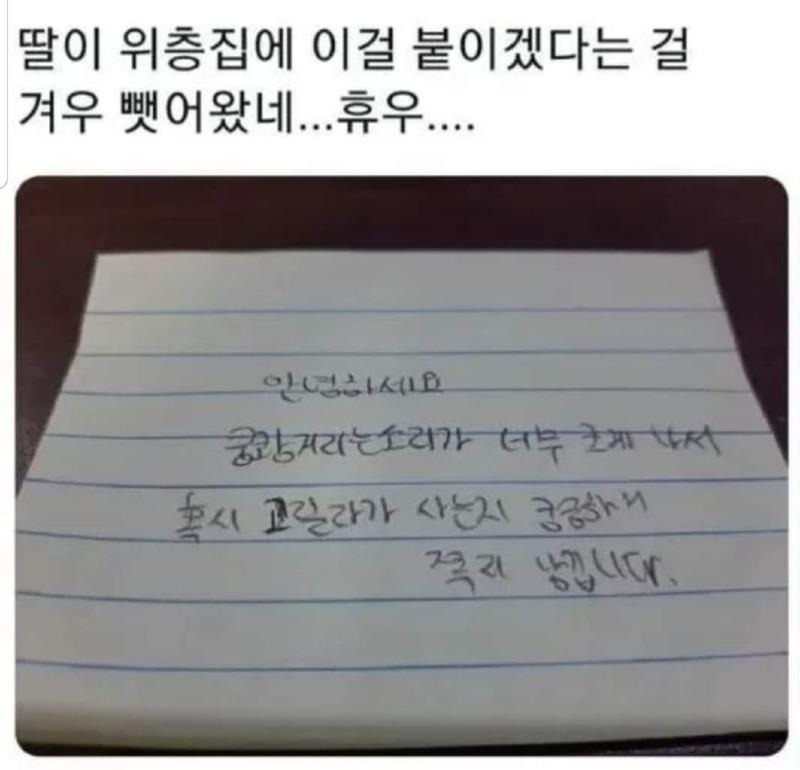 딸이 위층집에 이걸 붙이겠다는 걸
겨우 뺏어왔네...휴우....
안녕하세요
쿵쾅거리는소리가 너무 크게 나서
혹시 고릴라가 사는지 궁금하여
쪽지 남깁니다.